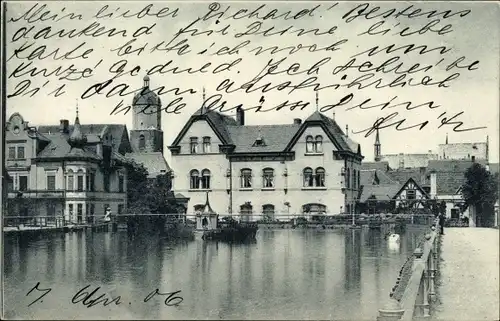 Mein lieber Richard! Bestens
dankend für Deine liebe
Karte bitte ich noch um
kurze Geduld. Ich schreibe
Dir dann ausführlich
Viele Grüsse Dein
Fritz
7. Apr. 06